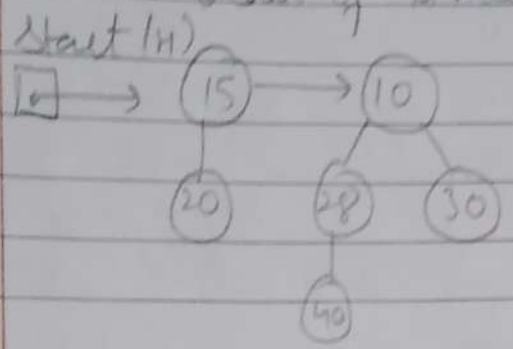 Start (H)
15 10
20 28 30
40